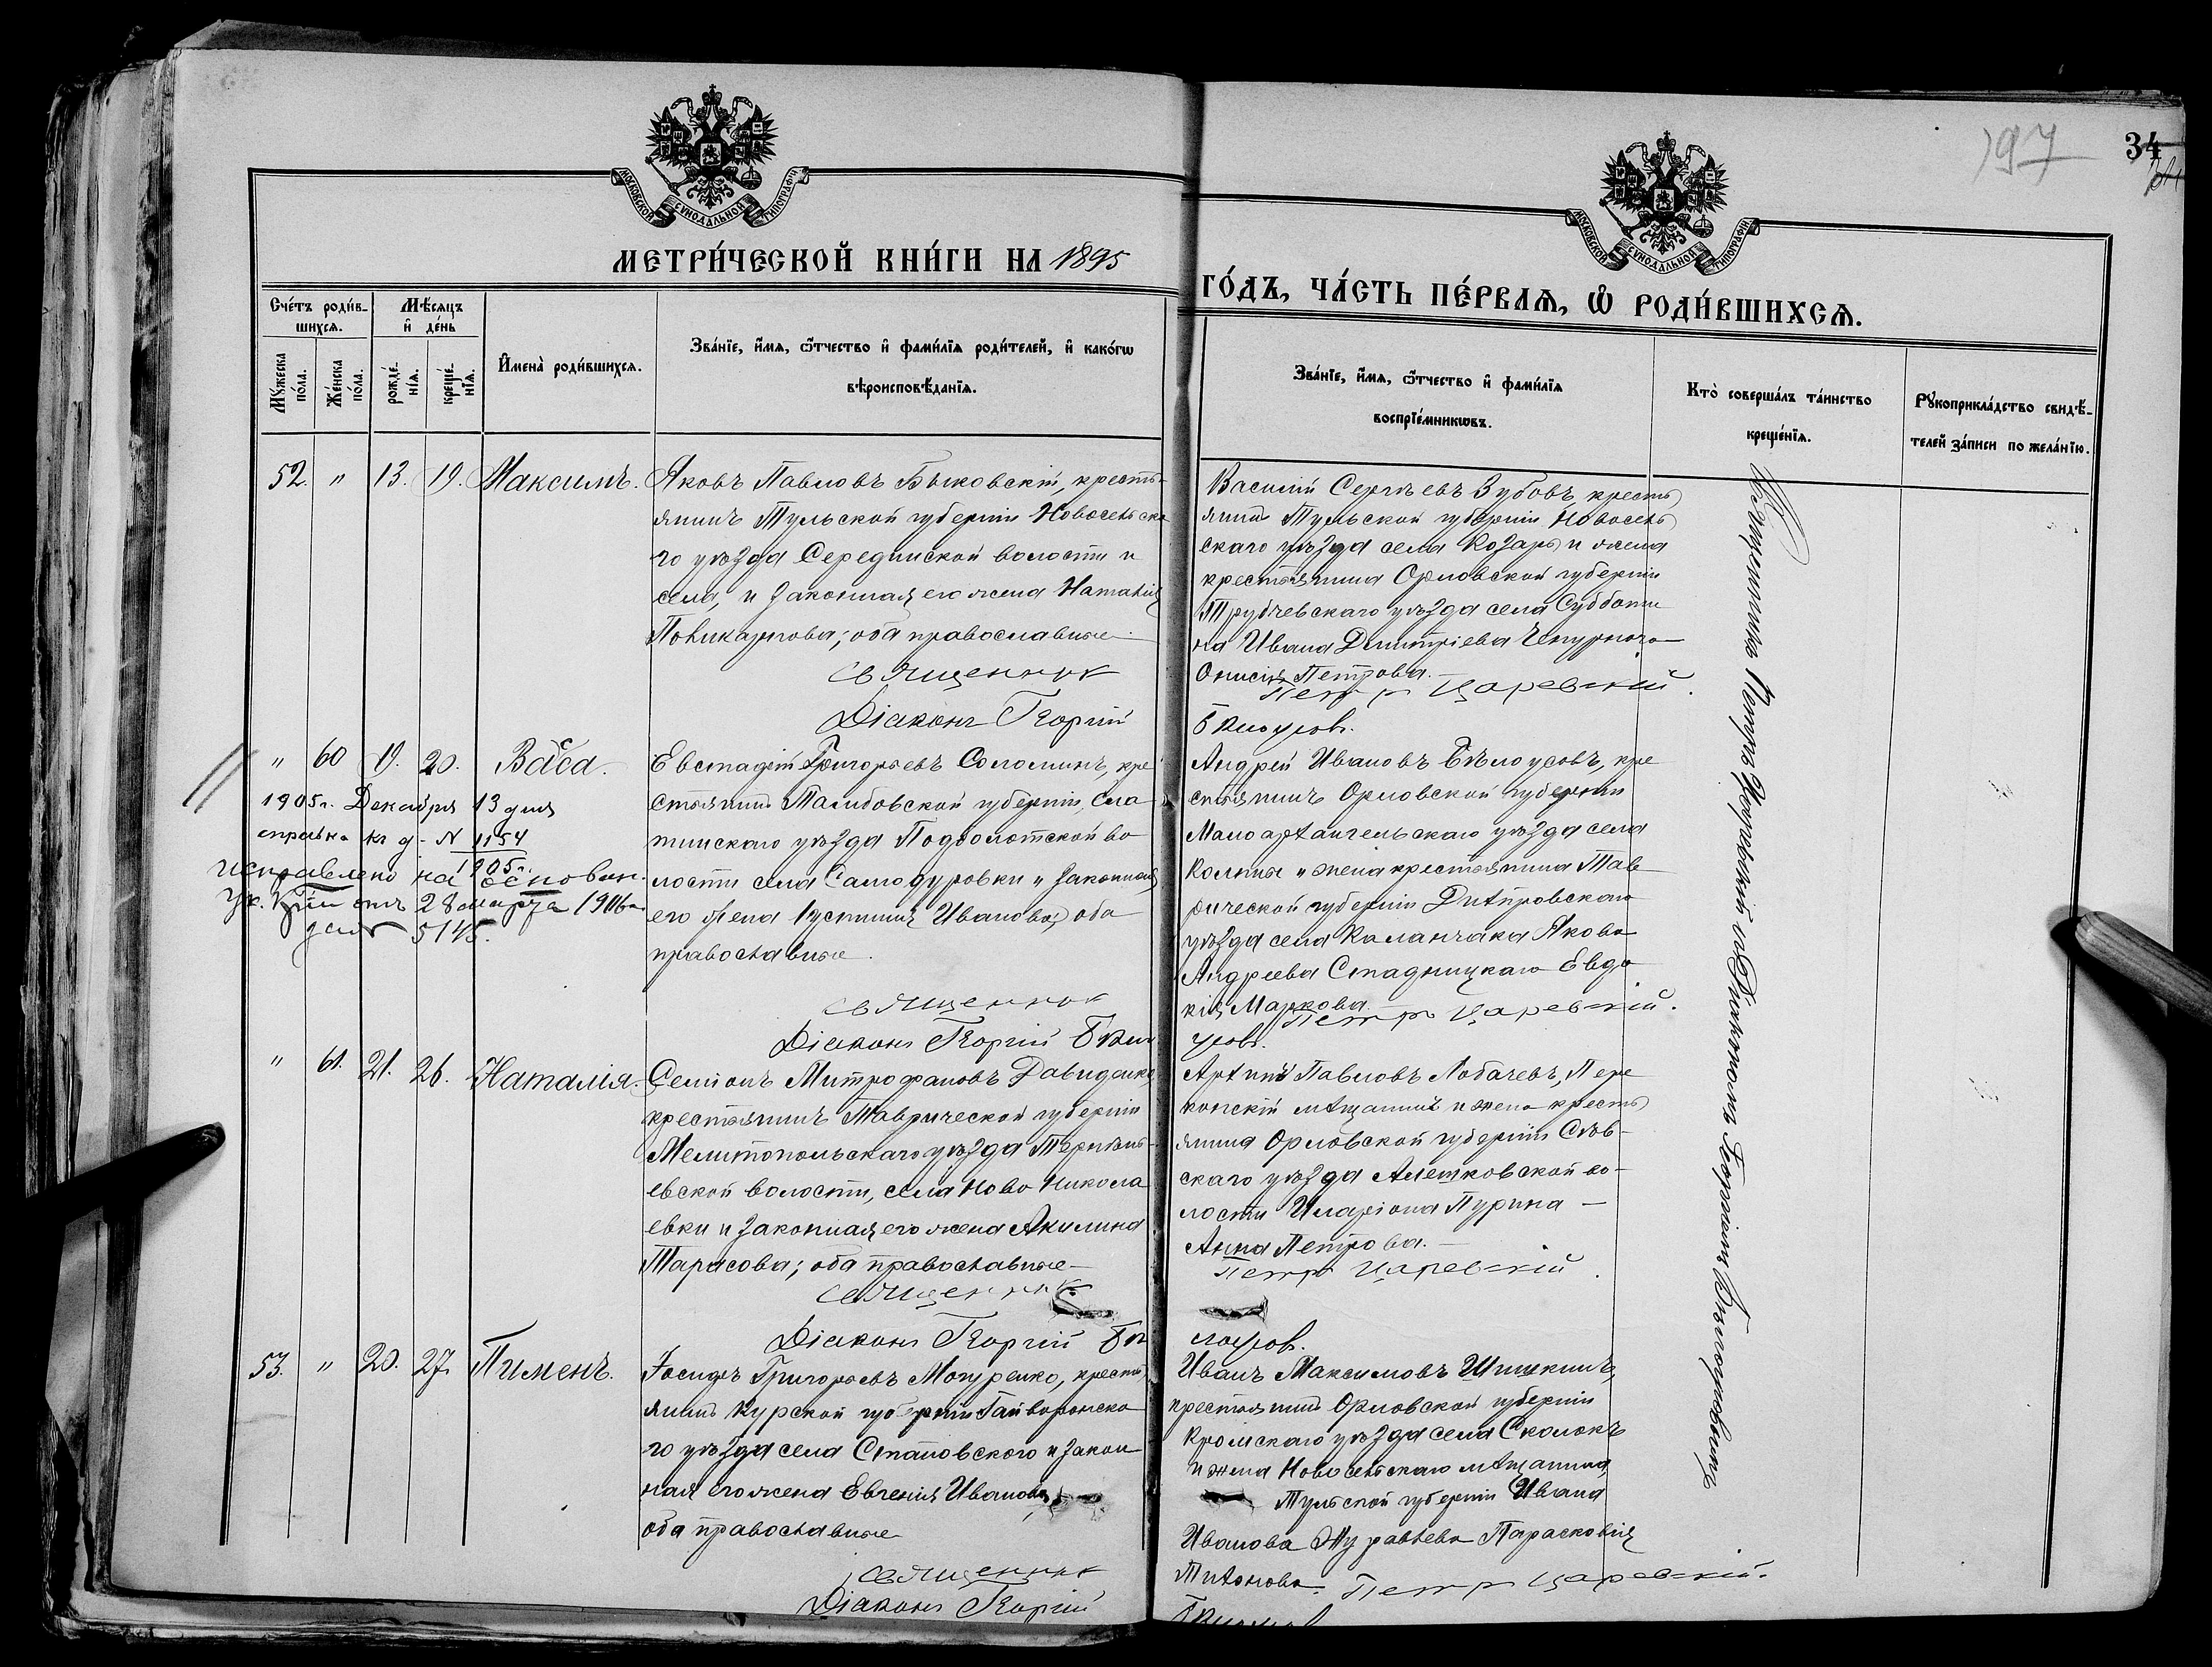 197
34
МОСКОВСКОЙ СѴНОДАЛЬНОЙ ТИПОГРАФІИ
МОСКОВСКОЙ СѴНОДАЛЬНОЙ ТИПОГРАФІИ
МЕТРИ́ЧЕСКОЙ КНИ́ГИ НА 1895
ГО́ДЪ, ЧА́СТЬ ПЕ́РВАѦ, Ѿ РОДИ́ВШИХСѦ.
Сче́тъ роди́в-
шихсѧ.
Мѣ́сѧцъ
и҆ де́нь
Мꙋ́жеска
по́ла.
Же́нска
по́ла.
рожде́-
нїѧ.
креще́-
нїѧ.
И҆мена̀ роди́вшихсѧ.
Зва́нїе, и҆́мѧ, ѻ҆́тчество и҆ фами́лїѧ роди́телей, и҆ како́гѡ
вѣроисповѣ́данїѧ.
Зва́нїе, и҆́мѧ, ѻ҆́тчество и҆ фами́лїѧ
воспрїе́мникѡвъ.
Кто̀ соверша́лъ та́инство
креще́нїѧ.
Рꙋкоприкла́дство свидѣ́-
телей за́писи по жела́нїю.
52. " 13. 19. Максимъ.
Яковъ Павловъ Быковскій, кресть-
янинъ Тульской губерніи Новосельска
го уѣзда Серединской волости и
села, и законная его жена Наталія
Поликарпова; оба православные
Священник
Діаконъ Георгій
Василій Сергѣевъ Зубовъ, кресть
янинъ Тульской губерніи Новосель
скаго уѣзда села Козарь и жена
крестьянина Орловской губерніи
Трубчевскаго уѣзда села Субботи
на Ивана Димитріева Чепурного
Онисія Петрова.
Петр Царевскій.
Бѣлоусов.
" 60 19. 20. Васса.
1905 г. Декабря 13 дня
справка къ д. N 1154
1905 г.
исправлено на основан.
Ук. отъ 28 марта 1906
за N 5145.
Евстафій Григорьевъ Соломинъ, кре
стьянинъ Тамбовской губерніи, Спа
тинскаго уѣзда Подболотской во
лости села Самодуровки и законная
его жена Іустинія Иванова; оба
православные.
Священник
Діаконъ Георгій Бѣло
Андрей Ивановъ Бѣлоусовъ, кре
стьянинъ Орловской губерніи
Малоархангельскаго уѣзда села
Колпны и жена крестьянина Тав
рической губерніи Днѣпровскаго
уѣзда села Каланчака Якова
Андреева Стадницкаго Евдо
кія Маркова
Петр Царевскій.
усов.
" 61. 21. 26. Наталія.
Семіонъ Митрофановъ Давиденко
крестьянинъ Таврической губерніи
Мелитопольскаго уѣзда
евской волости, села Ново Никола
евки и законная его жена Акилина
Тарасова; оба православные
Священник
Діаконъ Георгій Бѣ
Архипъ Павловъ Лобачевъ, Пере
копскій мѣщанинъ и жена кресть
янина Орловской губерніи Сѣв-
скаго уѣзда Алешковской во-
лости Иларіона Пурина
Анна Петрова.
Петр Царевскій.
лоусов.
53. " 20. 27. Пименъ.
Іосифъ Григорьевъ Мокренко, кресть
янинъ Курской губерніи Гайворонска
го уѣзда села Становского и закон
ная его жена Евгенія Иванова,
оба православные
Священник
Діаконъ Георгій
Иванъ Максимовъ Шишкинъ,
крестьянинъ Орловской губерніи
Кромскаго уѣзда села Сколокъ
и жена Новосельскаго мѣщанина,
Тульской губерніи Ивана
Иванова Журавлева Параскевія
Тихонова.
Петр Царевскій.
Бѣлоусов
Священникъ Петръ Царевскій съ Діакономъ Георгіемъ Бѣлоусовымъ